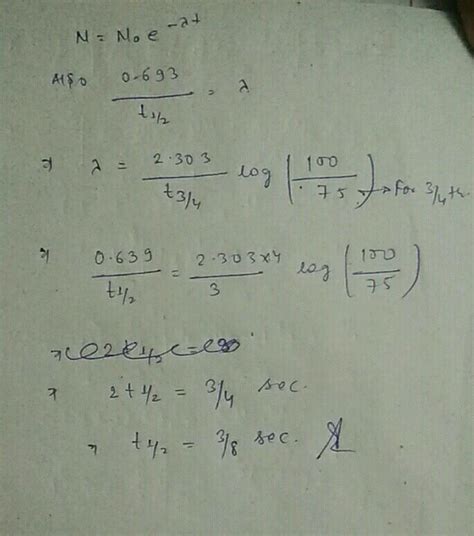 N = N₀ e^{-λt}
Also 0.693/t_{1/2} = λ
⇒ λ = 2.303/t_{3/4} log (100/75) → for 3/4 th.
⇒ 0.639/t_{1/2} = 2.303×4/3 log (100/75)
⇒ 2 t_{1/2} = 3/4 sec.
⇒ t_{1/2} = 3/8 sec.